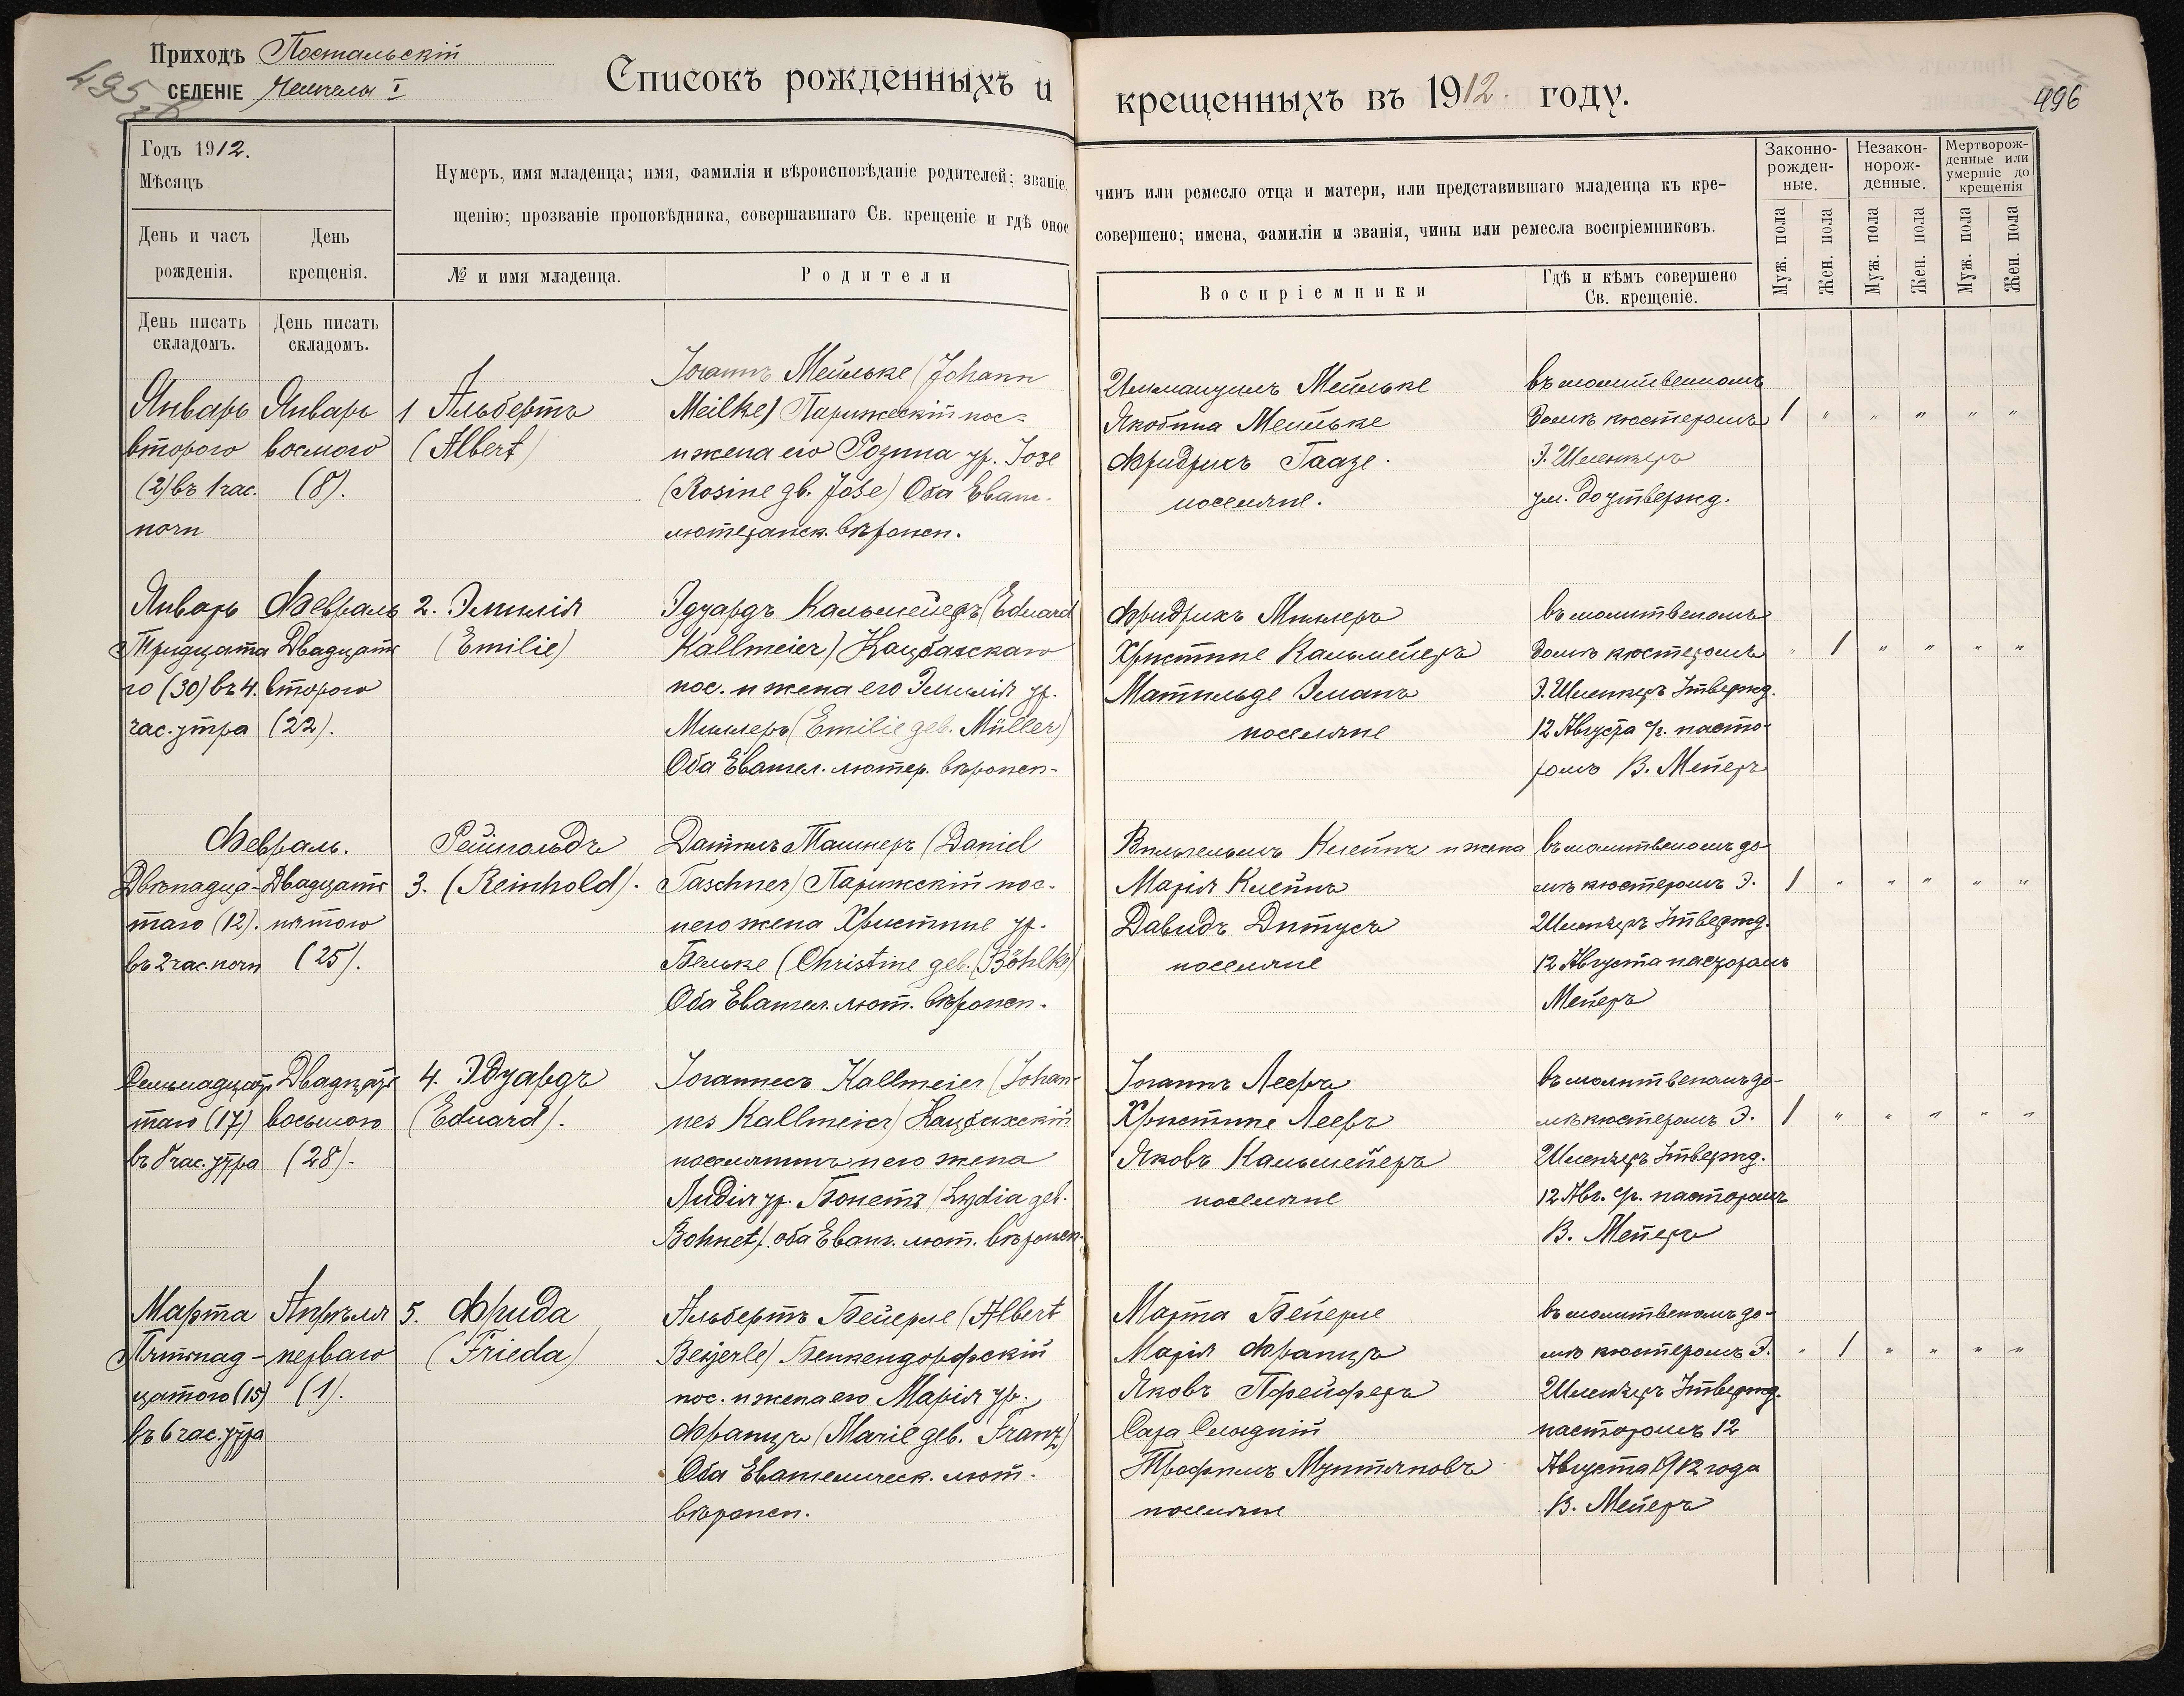 Приходъ Постальскій
СЕЛЕНІЕ Ченчелы I
495
Списокъ рожденныхъ и крещенныхъ въ 1912 году.
496
Годъ 1912.
Мѣсяцъ
День и часъ рожденія.
День крещенія.
Нумеръ, имя младенца; имя, фамилія и вѣроисповѣданіе родителей; званіе, чинъ или ремесло отца и матери, или представившаго младенца къ кре-
щенію; прозваніе проповѣдника, совершавшаго Св. крещеніе и гдѣ оное совершено; имена, фамиліи и званія, чины или ремесла воспріемниковъ.
№ и имя младенца.
Родители
Воспріемники
Гдѣ и кѣмъ совершено
Св. крещеніе.
Законно-
рожден-
ные.
Незакон-
норож-
денные.
Мертворож-
денные или
умершіе до
крещенія
Муж. пола
Жен. пола
Муж. пола
Жен. пола
Муж. пола
Жен. пола
День писать
складомъ.
День писать
складомъ.
Январь
второго
(2) въ 1 час.
ночи
Январь
восмого
(8).
1 Альбертъ
(Albert)
Іоганнъ Мейльке (Johann
Meilke) Парижескій пос-
и жена его Розина ур. Іозе
(Rosine gb. Jose) Оба Еванг.
лютеранск. вѣроисп.
Иммануилъ Мейльке
Якобина Мейльке
Фридрихъ Гаазе.
поселяне.
въ молитвенномъ
домѣ кюстеромъ
Э. Шленкеръ
ум. до утвержд.
1 " " " " "
Январь
Тридцата
го (30) въ 4.
час. утра
Февраль
Двадцать
второго
(22).
2. Эмилія
(Emilie)
Эдуардъ Кальмейеръ (Eduard
Kallmeier) Кацбахскаго
пос. и жена его Эмилія ур.
Миллеръ (Emilie geb. Müller)
Оба Евангел. лютер. вѣроисп.
Фридрихъ Миллеръ
Христине Кальмейеръ
Матильде Эманъ
поселяне
въ молитвеномъ
домѣ кюстеромъ
Э. Шленкеръ Утвержд.
12 Августа с/г. пасто-
ромъ В. Мейеръ
" 1 " " " "
Февраль.
Двѣнадца-
таго (12).
въ 2 час. ночи
Двадцать
пятого
(25).
Рейнольдъ
3. (Reinhold).
Даніилъ Ташнеръ (Daniel
Taschner) Парижскій пос.
и его жена Христине ур.
Бельке (Christine geb. (Böhlke)
Оба Евангел. лют. вѣроисп.
Вильгельмъ Клейнъ и жена
Марія Клейнъ
Давидъ Дитусъ
поселяне
въ молитвеномъ до-
мѣ кюстеромъ Э.
Шленкеръ Утвержд.
12 Августа пасторомъ
Мейеръ
1 " " " " "
Семьнадцат
таго (17)
час. утра
Двадцать
восьмого
(28).
4. Эдуардъ
(Eduard).
Іоганнесъ Kallmeier (Johan-
nes Kallmeier) Кацбахскій
поселянинъ и его жена
Лидія ур. Бонетъ (Lydia geb.
Bohnet). оба Еванг. лют. вѣроисп.
Іоганнъ Лееръ
Христине Лееръ
Яковъ Кальмейеръ
поселяне
въ молитвеномъ до-
мѣ кюстеромъ Э.
Шленкеръ Утвержд.
12 Авг. с/г. пасторомъ
В. Мейеръ
1 " " " " "
Марта
Пятнад-
цатого (15)
въ 6 час. утра
Апрѣля
перваго
(1).
5. Фрида
(Frieda)
Альбертъ Бейерле (Albert
Beijerle) Бенкендорфскій
пос. и жена его Марія ур.
Францъ (Marie geb. Franz)
Оба Евангелическ. лют.
вѣроисп.
Марта Бейерле
Марія Францъ
Яковъ Пфейферъ
Сара
Трофимъ Мунтяновъ
поселяне
въ молитвеномъ до-
мѣ кюстеромъ Э.
Шленкеръ Утвержд.
пасторомъ 12
Августа 1912 года
В. Мейеръ
" 1 " " " "